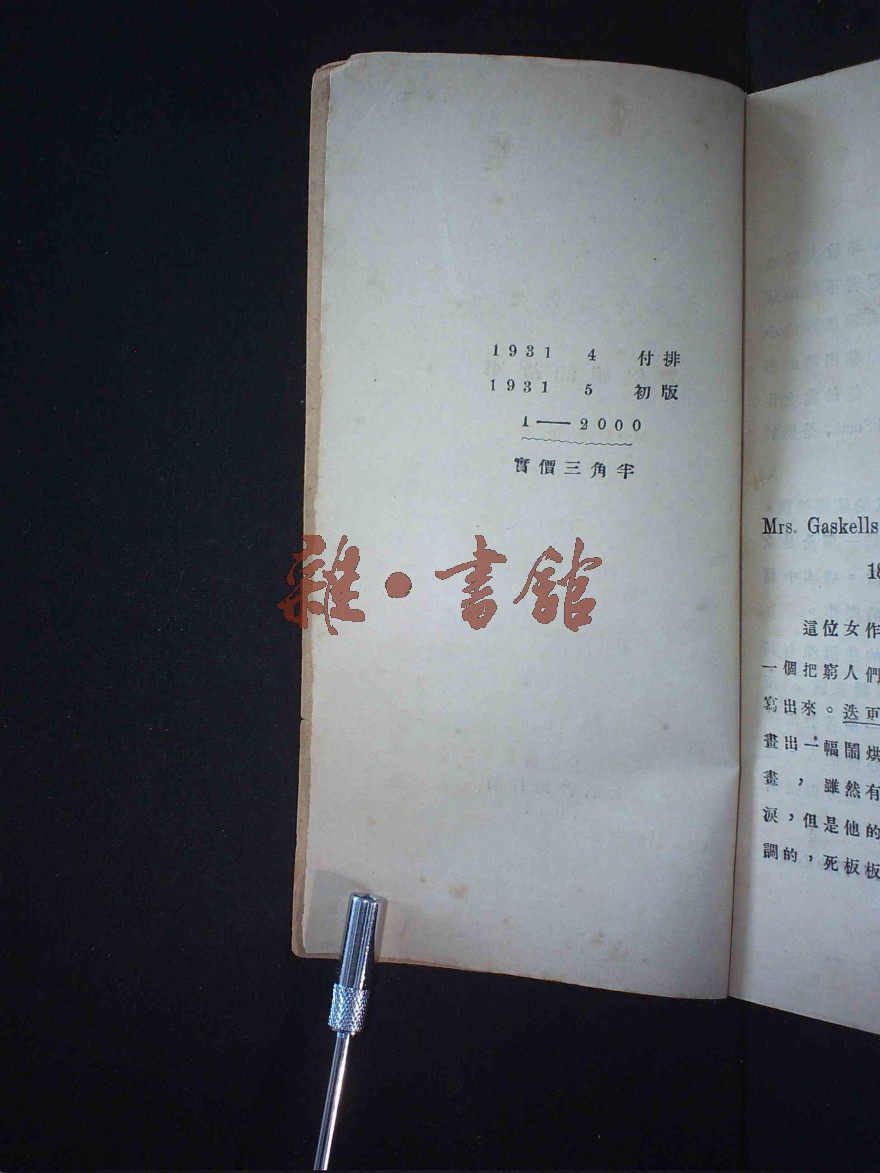 1931 4 付排
1931 5 初版
1——2000
實價三角半
雜·書館
Mrs. Gaskells
18
這位女作
一個把窮人們
寫出來。迭更
畫出一幅鬧烘
畫，雖然有
淚，但是他的
調的，死板板